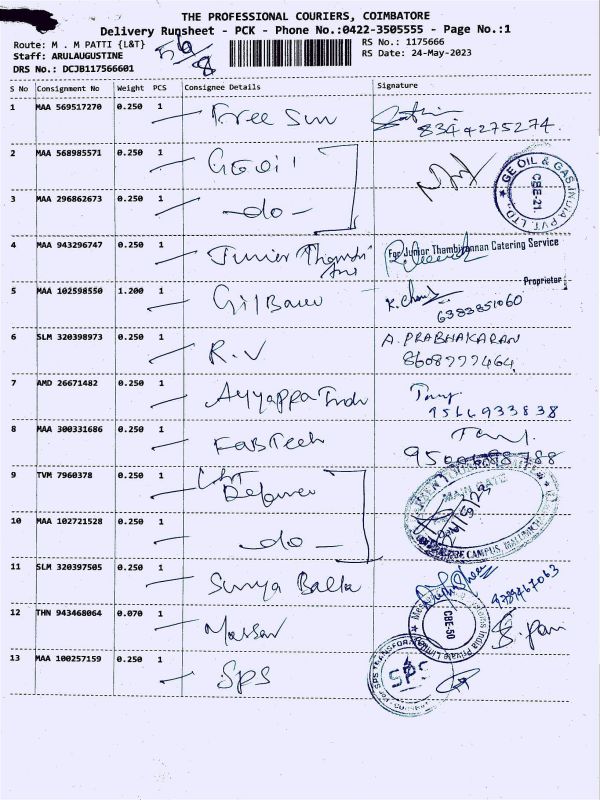 THE PROFESSIONAL COURIERS, COIMBATORE
Delivery Runsheet - PCK - Phone No.:0422-3505555 - Page No.:1
Route: M . M PATTI {L&T}
RS No.: 1175666
Staff: ARULAUGUSTINE
RS Date: 24-May-2023
DRS No.: DCJB117566601
S No Consignment No Weight PCS Consignee Details Signature
1 MAA 569517270 0.250 1 Free Sun
8344275274
2 MAA 568985571 0.250 1 GE Oil
GE OIL & GAS INDIA PVT. LTD. CBE-21.
3 MAA 296862673 0.250 1 -do-
4 MAA 943296747 0.250 1 Junior
For Junior Thambiyannan Catering Service
Proprietor
5 MAA 102598550 1.200 1
6383851060
6 SLM 320398973 0.250 1 R.V A. PRABHAKARAN
8608777464
7 AMD 26671482 0.250 1 Ayyappa
9566933838
8 MAA 300331686 0.250 1 FabTech
9 TVM 7960378 0.250 1 L&T
Defence
10 MAA 102721528 0.250 1 -do-
CAMPUS,
11 SLM 320397505 0.250 1 Surya Balla
12 THN 943468064 0.070 1
India Private Limited
CBE-50
13 MAA 100257159 0.250 1 SPS
SPS